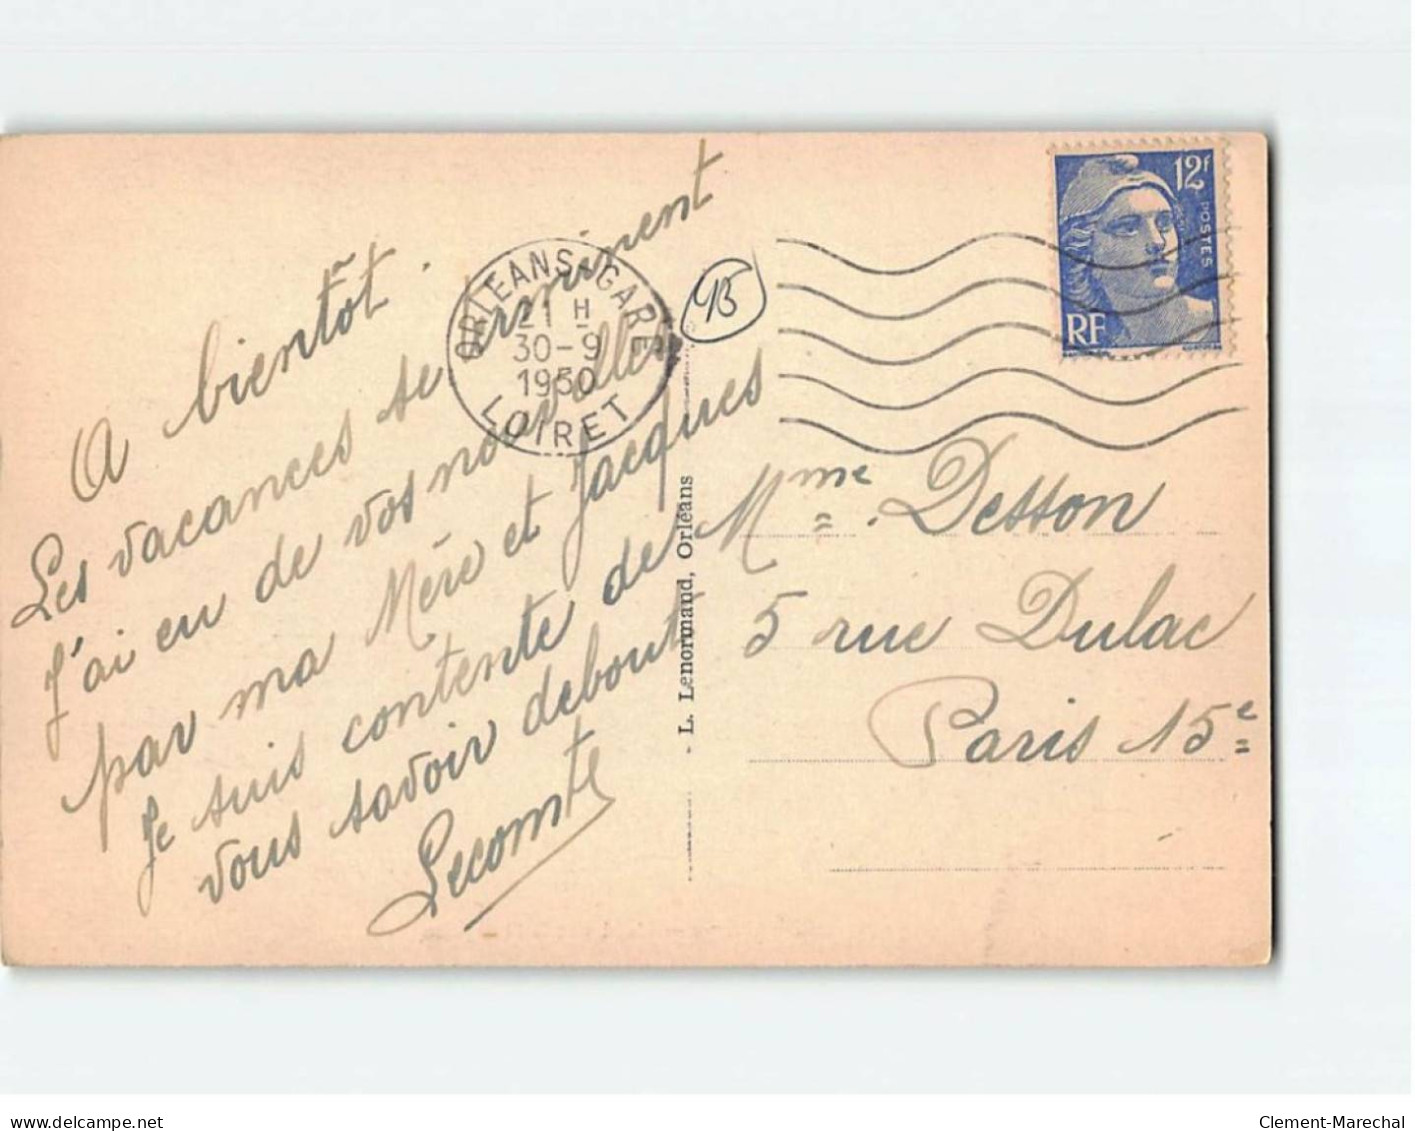 A bientôt.
Les vacances se terminent
J'ai eu de vos nouvelles
par ma Mère et Jacques
Je suis contente de
vous savoir debout
Lecomte
ORLEANS-GARE
21 H
30-9
1950
LOIRET
45
12F
POSTES
RF
L. Lenormand, Orléans
Mme. Desson
5 rue Dulac
Paris 15e
delcampe.net
Clement-Marechal